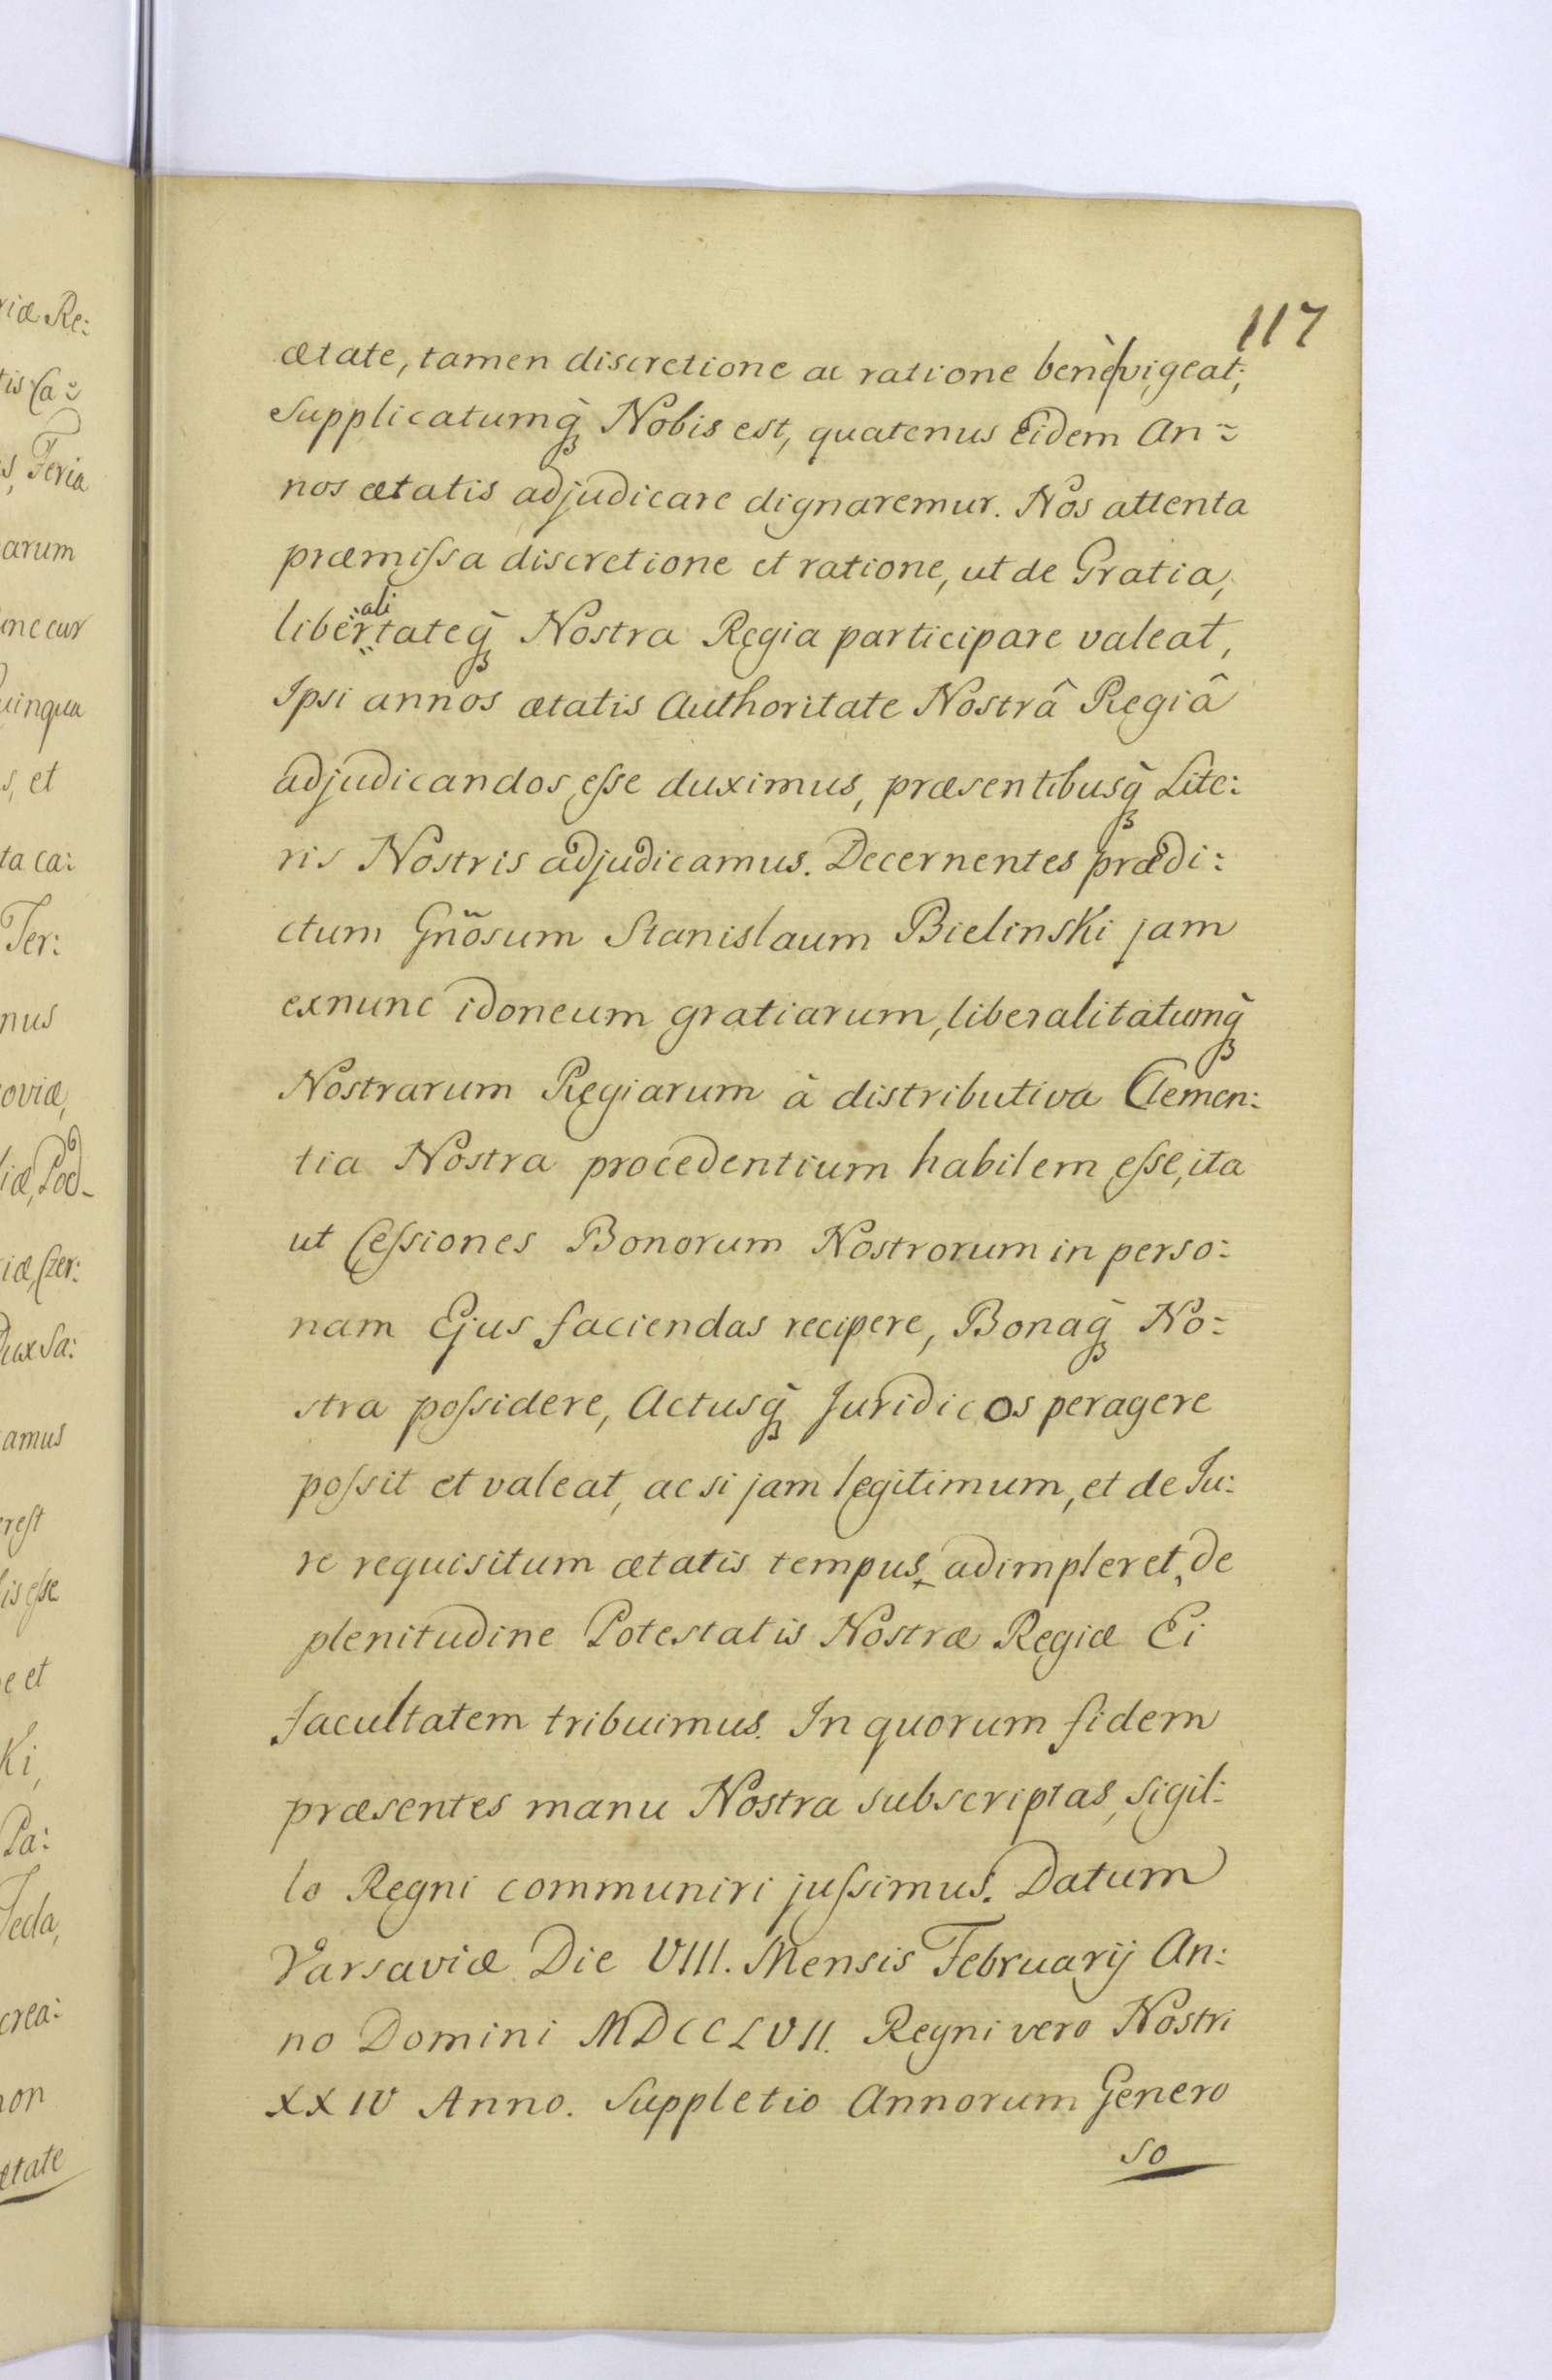 117
ætate, tamen discretione ac ratione benè vigeat;
Supplicatumq̀ Nobis est, quatenus Eidem An=
nos ætatis adjudicare dignaremur. Nos attenta
præmiſsa discretione et ratione, ut de Gratia,
ali
libertateq̀ Nostra Regia participare valeat,
Ipsi annos ætatis Authoritate Nostrâ Regiâ
adjudicandos eſse duximus, præsentibusq̀ Lite:
ris Nostris adjudicamus. Decernentes prædi:
ctum Gñosum Stanislaum Bielinski jam
exnunc idoneum gratiarum, liberalitatumq̀
Nostrarum Regiarum à distributiva Clemen:
tia Nostra procedentium habilem eſse, ita
ut Ceſsiones Bonorum Nostrorum in perso:
nam Ejus faciendas recipere, Bonaq̀ No:
stra poſsidere, Actusq̀ Juridicos peragere
poſsit et valeat, ac si jam legitimum, et de Ju:
re requisitum ætatis tempus adimpleret, de
plenitudine Potestatis Nostræ Regiæ Ei
facultatem tribuimus. In quorum fidem
præsentes manu Nostra subscriptas, sigil:
lo Regni communiri juſsimus. Datum
Varsaviæ Die VIII. Mensis Februarij An:
no Domini MDCCLVII. Regni vero Nostri
XXIV Anno. Suppletio Annorum Genero
so